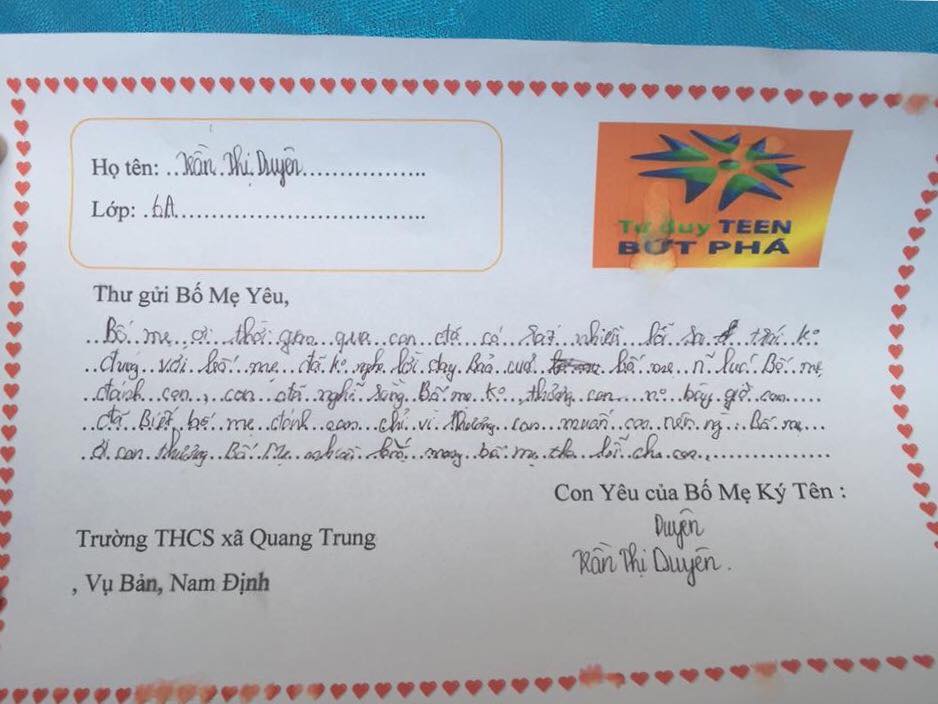 Họ tên: Trần Thị Duyên
Lớp: 6A
Tư duy TEEN
BỨT PHÁ
Thư gửi Bố Mẹ Yêu,
Bố mẹ ơi thời gian qua con đã có rất nhiều lỗi sa thái ko
đúng với bố mẹ đã ko nghe lời dạy Bảo của bố mẹ n~ lúc Bố mẹ
đánh con, con đã nghĩ rằng Bố mẹ ko thương con bây giờ con
đã Biết bố mẹ đánh con chỉ vì thương con muốn con nên ng Bố mẹ
ơi con thương Bố Mẹ nhiều lắm mong bố mẹ tha lỗi cho con
Con Yêu của Bố Mẹ Ký Tên :
Duyên
Trần Thị Duyên.
Trường THCS xã Quang Trung
, Vụ Bản, Nam Định